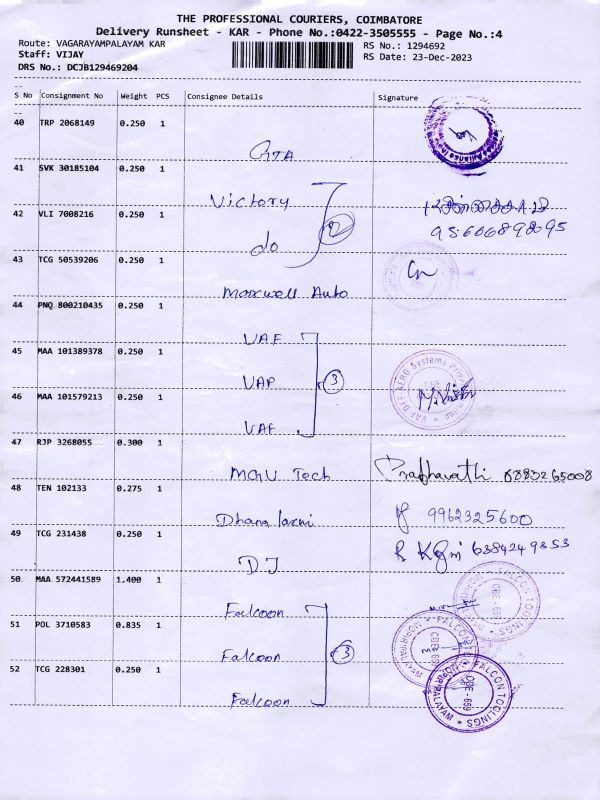 THE PROFESSIONAL COURIERS, COIMBATORE
Delivery Runsheet - KAR - Phone No.:0422-3505555 - Page No.:4
Route: VAGARAYAMPALAYAM KAR
RS No.: 1294692
Staff: VIJAY
RS Date: 23-Dec-2023
DRS No.: DCJB129469204
S No Consignment No Weight PCS Consignee Details Signature
40 TRP 2068149 0.250 1
GTA
41 SVK 30185104 0.250 1
Victory
42 VLI 7008216 0.250 1
2
do
43 TCG 50539206 0.250 1
Maxwell Auto
44 PNQ 800210435 0.250 1
VAF
45 MAA 101389378 0.250 1
VAF 3
46 MAA 101579213 0.250 1
VAF
47 RJP 3268055 0.300 1
MGU Tech Prabhavathi 6883265008
48 TEN 102133 0.275 1
Dhana laxmi 9962325600
49 TCG 231438 0.250 1
DJ
50 MAA 572441589 1.400 1
Falcoon
51 POL 3710583 0.835 1
Falcoon 3
52 TCG 228301 0.250 1
Falcoon
FALCON TOOLINGS
CBE - 659